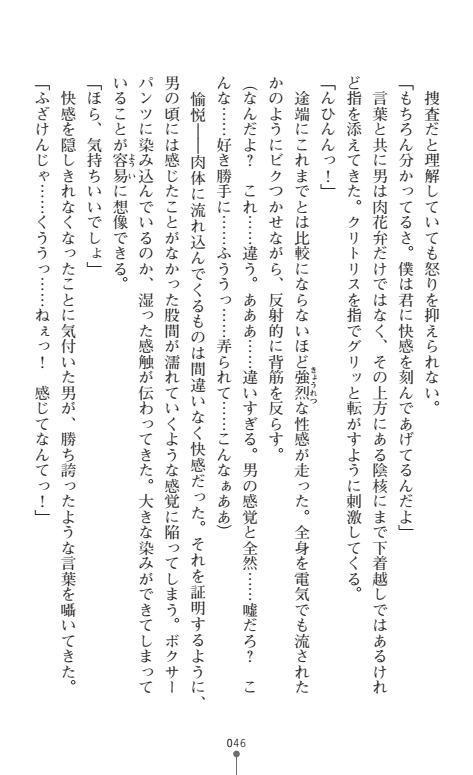 捜査だと理解していても怒りを抑えられない。
「もちろん分かってるさ。僕は君に快感を刻んであげてるんだよ」
言葉と共に男は肉花弁だけではなく、その上方にある陰核にまで下着越しではあるけれ
ど指を添えてきた。クリトリスを指でグリッと転がすように刺激してくる。
「んひんんっ！」
途端にこれまでとは比較にならないほど強烈な性感が走った。全身を電気でも流された
きょうれつ
かのようにビクつかせながら、反射的に背筋を反らす。
（なんだよ？　これ……違う。あああ……違いすぎる。男の感覚と全然……嘘だろ？　こ
んな……好き勝手に……ふううっ……弄られて……こんなぁああ）
愉悦――肉体に流れ込んでくるものは間違いなく快感だった。それを証明するように、
男の頃には感じたことがなかった股間が濡れていくような感覚に陥ってしまう。ボクサー
パンツに染み込んでいるのか、湿った感触が伝わってきた。大きな染みができてしまって
いることが容易に想像できる。
ようい
「ほら、気持ちいいでしょ」
快感を隠しきれなくなったことに気付いた男が、勝ち誇ったような言葉を囁いてきた。
「ふざけんじゃ……くううっ……ねぇっ！　感じてなんてっ！」
046